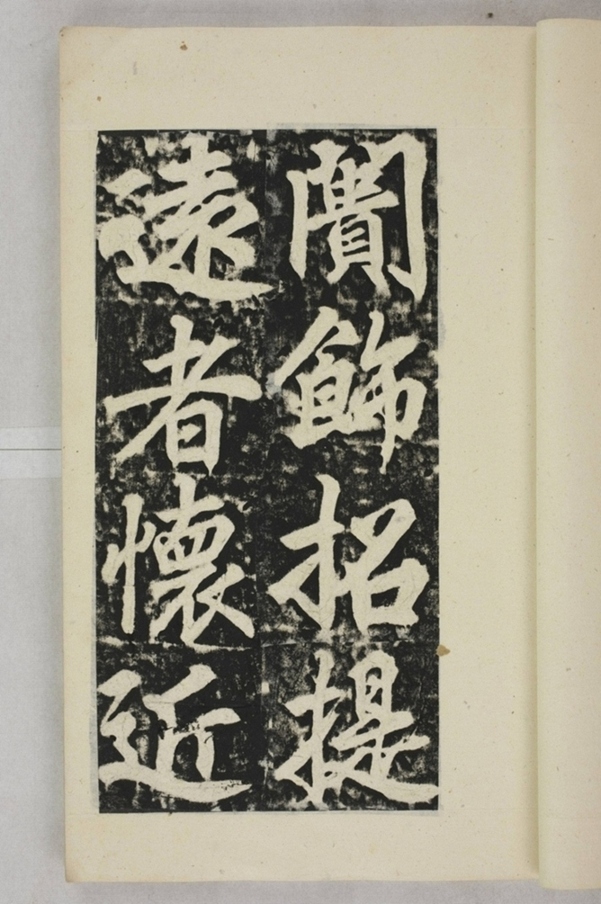 闠飾招提
遠者懷近